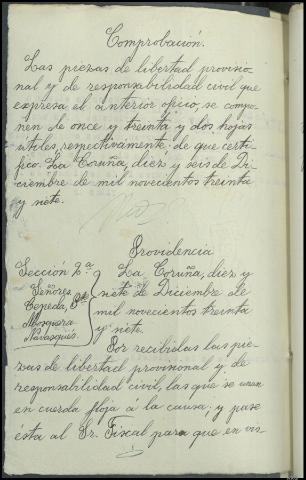 Comprobación.
Las piezas de libertad provisio-
nal y de responsabilidad civil que
expresa el anterior oficio, se compo-
nen de once y treinta y dos hojas
utiles, respectivamente: de que certi-
fico. La Coruña, diez y seis de Di-
ciembre de mil novecientos treinta
y siete.
Providencia
Sección 2ª
Señores
Cepeda, Pte
Mosquera
La Coruña, diez y
siete de Diciembre de
mil novecientos treinta
y siete.
Por recibidas las pie-
zas de libertad provisional y de
responsabilidad civil, las que se unan
en cuerda floja á la causa; y pase
ésta al Sr. Fiscal para que en vis-